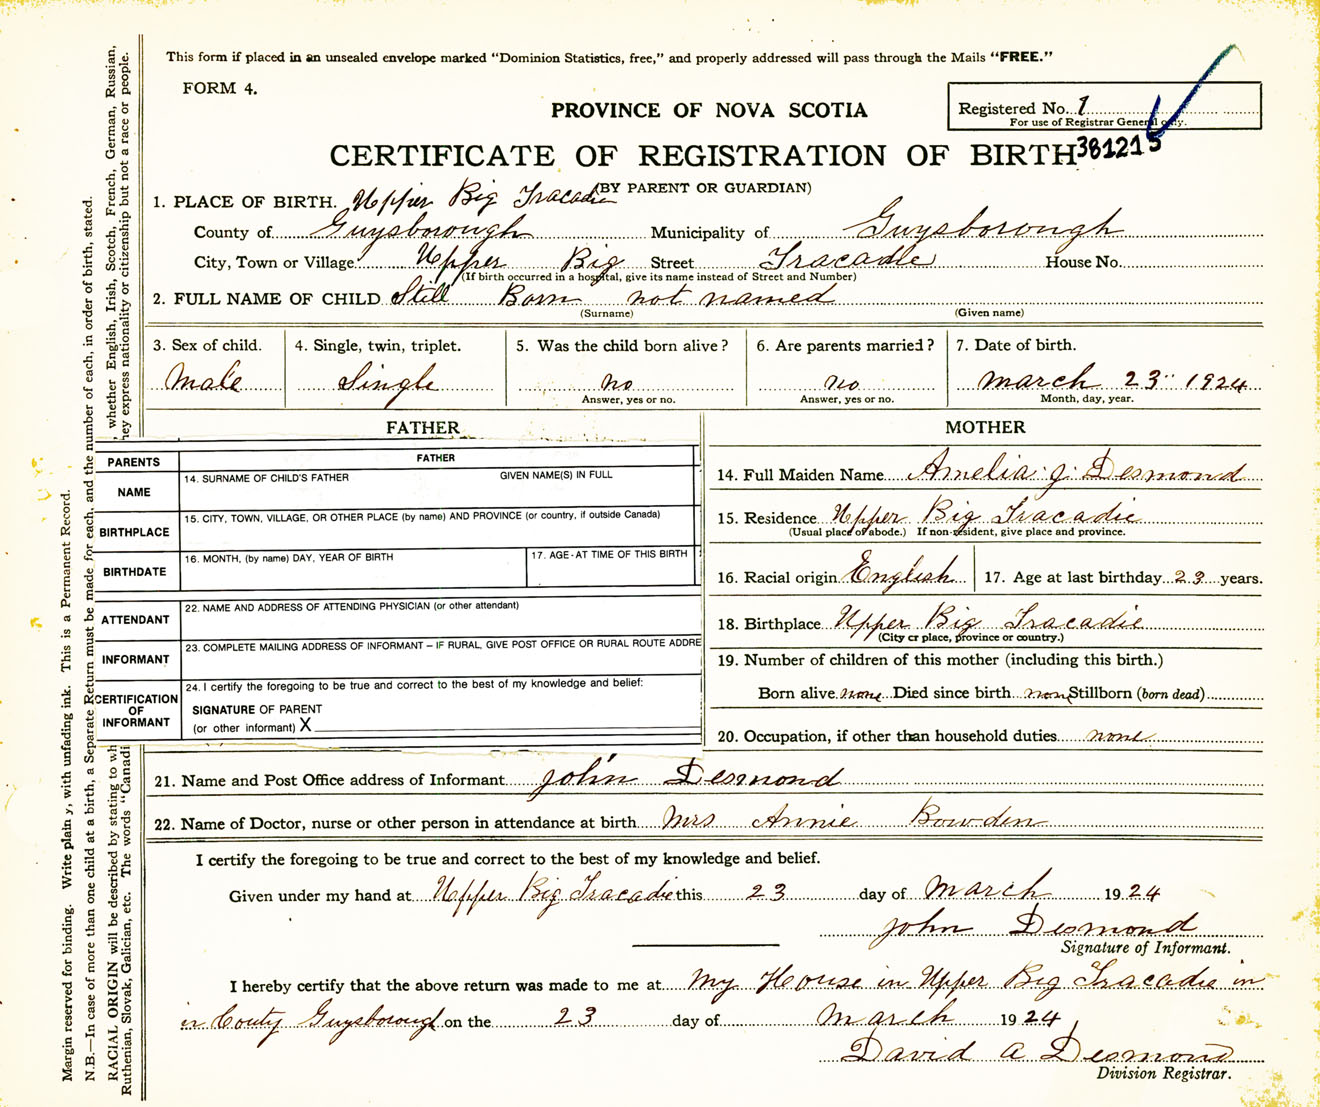 This form if placed in an unsealed envelope marked “Dominion Statistics, free,” and properly addressed will pass through the Mails “FREE.”
FORM 4.
PROVINCE OF NOVA SCOTIA
Registered No. 1
For use of Registrar General only.
381215
CERTIFICATE OF REGISTRATION OF BIRTH
(BY PARENT OR GUARDIAN)
1. PLACE OF BIRTH. Upper Big Tracadie
County of Guysborough Municipality of Guysborough
City, Town or Village Upper Big Street Tracadie House No.
(If birth occurred in a hospital, give its name instead of Street and Number)
2. FULL NAME OF CHILD Still Born not named
(Surname) (Given name)
3. Sex of child. 4. Single, twin, triplet. 5. Was the child born alive? 6. Are parents married? 7. Date of birth.
Male Single no no March 23 1924
Answer, yes or no. Answer, yes or no. Month, day, year.
FATHER MOTHER
PARENTS FATHER
NAME
14. SURNAME OF CHILD'S FATHER GIVEN NAME(S) IN FULL
BIRTHPLACE
15. CITY, TOWN, VILLAGE, OR OTHER PLACE (by name) AND PROVINCE (or country, if outside Canada)
BIRTHDATE
16. MONTH, (by name) DAY, YEAR OF BIRTH 17. AGE - AT TIME OF THIS BIRTH
ATTENDANT
22. NAME AND ADDRESS OF ATTENDING PHYSICIAN (or other attendant)
INFORMANT
23. COMPLETE MAILING ADDRESS OF INFORMANT – IF RURAL, GIVE POST OFFICE OR RURAL ROUTE ADDRE
CERTIFICATION OF INFORMANT
24. I certify the foregoing to be true and correct to the best of my knowledge and belief:
SIGNATURE OF PARENT
(or other informant) X
14. Full Maiden Name Amelia J Desmond
15. Residence Upper Big Tracadie
(Usual place of abode.) If non-resident, give place and province.
16. Racial origin English 17. Age at last birthday 23 years.
18. Birthplace Upper Big Tracadie
(City or place, province or country.)
19. Number of children of this mother (including this birth.)
Born alive none Died since birth none Stillborn (born dead)
20. Occupation, if other than household duties none
21. Name and Post Office address of Informant John Desmond
22. Name of Doctor, nurse or other person in attendance at birth Mrs Annie Bowden
I certify the foregoing to be true and correct to the best of my knowledge and belief.
Given under my hand at Upper Big Tracadie this 23 day of March 1924
John Desmond
Signature of Informant.
I hereby certify that the above return was made to me at My House in Upper Big Tracadie in
in Couty Guysborough on the 23 day of March 1924
David A Desmond
Division Registrar.
Margin reserved for binding. Write plainly, with unfading ink. This is a Permanent Record.
N.B.—In case of more than one child at a birth, a Separate Return must be made for each, and the number of each, in order of birth, stated.
RACIAL ORIGIN will be described by stating to wh whether English, Irish, Scotch, French, German, Russian,
Ruthenian, Slovek, Galician, etc. The words “Canadi hey express nationality or citizenship but not a race or people.